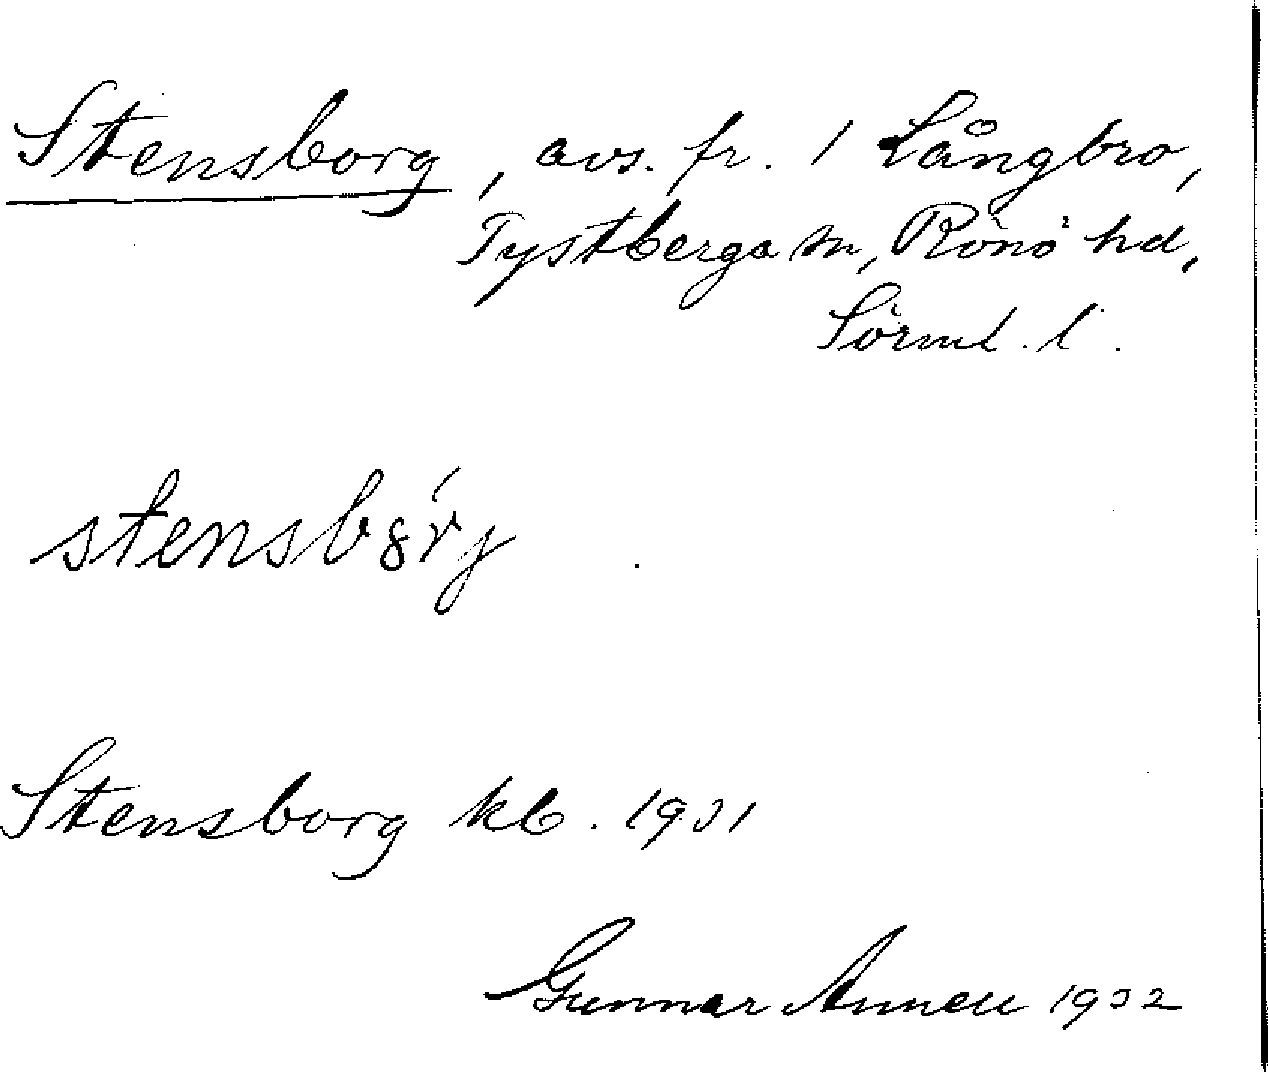 Stensborg, avs. fr. 1 Långbro,
Tystberga sn, Rönö hd,
Sörml. l.
stensbȣ́rj
Stensborg kb. 1931
Gunnar Annell 1932